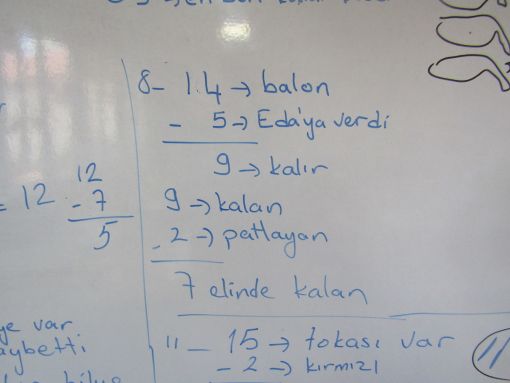 = 12
12
- 7
5
ye var
aybetti
8- 14 → balon
- 5 → Eda'ya verdi
9 → kalır
9 → kalan
- 2 → patlayan
7 elinde kalan
11 - 15 → tokası var
- 2 → kırmızı
11